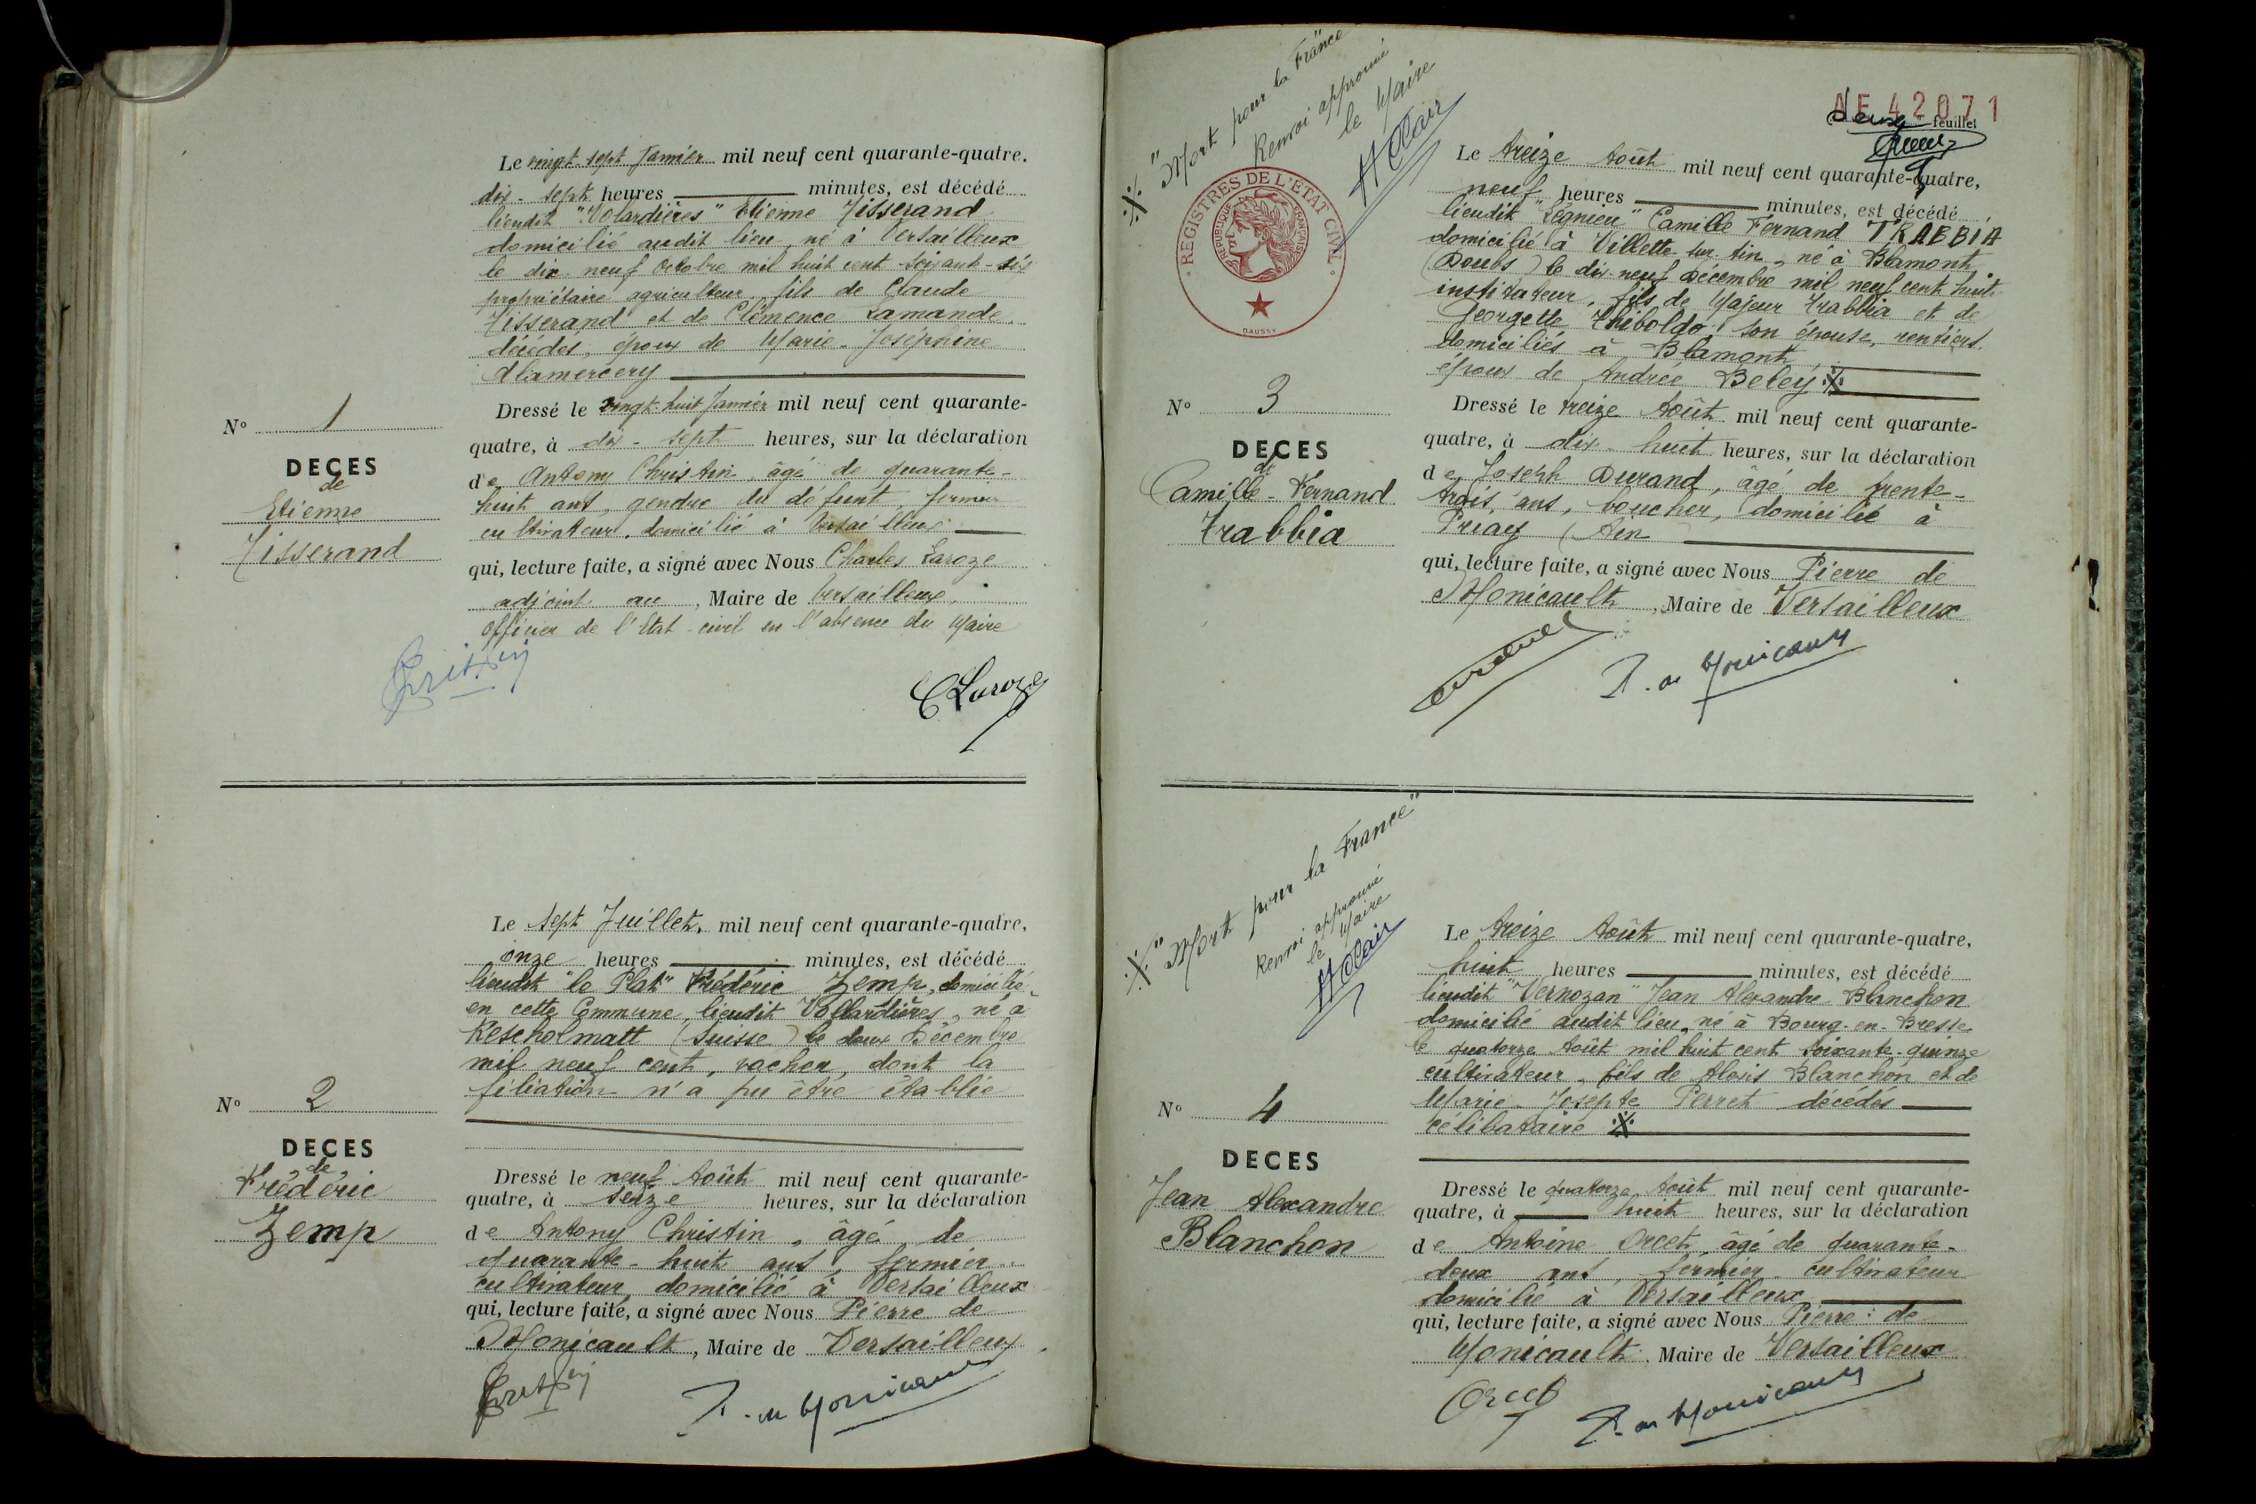 Le vingt-sept Janvier mil neuf cent quarante-quatre,
dix-sept heures minutes, est décédé
lieudit "Volardières" Etienne Tisserand
domicilié audit lieu, né à Versailleux
le dix-neuf Octobre mil huit cent soixante-six
propriétaire agriculteur, fils de Claude
Tisserand et de Clémence Lamande
décédés, époux de Marie-Joséphine
Alamercery
N° 1
DECES
de
Etienne
Tisserand
Dressé le vingt-huit Janvier mil neuf cent quarante-
quatre, à dix-sept heures, sur la déclaration
de Antony Christin, âgé de quarante-
huit ans, gendre du défunt, fermier
cultivateur, domicilié à Versailleux
qui, lecture faite, a signé avec Nous Charles Laroze
adjoint au, Maire de Versailleux,
Officier de l'Etat-civil en l'absence du Maire
Christin
C Laroze
Le sept Juillet, mil neuf cent quarante-quatre,
onze heures minutes, est décédé
lieudit "le Plat" Frédéric Zemp, domicilié
en cette Commune, lieudit Vollardières, né à
Rescholmatt (Suisse) le deux Décembre
mil neuf cent, vacher, dont la
filiation n'a pu être établie
N° 2
DECES
de
Frédéric
Zemp
Dressé le neuf Août mil neuf cent quarante-
quatre, à seize heures, sur la déclaration
de Antony Christin, âgé de
quarante-huit ans, fermier
cultivateur, domicilié à Versailleux
qui, lecture faite, a signé avec Nous Pierre de
Monicault, Maire de Versailleux
Christin
P. de Monicault
"Mort pour la France"
Renvoi approuvé
le Maire
H Clair
REGISTRES DE L'ETAT CIVIL
REPUBLIQUE FRANÇAISE
DAUSSY
AE 42071
deux feuillet
Le treize Août mil neuf cent quarante-quatre,
neuf heures minutes, est décédé
lieudit "Légnieu" Camille Fernand TRABBIA
domicilié à Villette sur Ain, né à Blamont
(Doubs) le dix-neuf Décembre mil neuf cent huit,
instituteur, fils de Majeur Trabbia et de
Georgette Thiboldo son épouse, rentiers
domiciliés à Blamont
époux de Andrée Beley
N° 3
DECES
de
Camille-Fernand
Trabbia
Dressé le treize Août mil neuf cent quarante-
quatre, à dix-huit heures, sur la déclaration
de Joseph Durand, âgé de trente-
trois, ans, boucher, domicilié à
Priay (Ain
qui, lecture faite, a signé avec Nous Pierre de
Monicault, Maire de Versailleux
P. de Monicault
"Mort pour la France"
Renvoi approuvé
le Maire
H Clair
Le treize Août mil neuf cent quarante-quatre,
huit heures minutes, est décédé
lieudit "Vernozan" Jean Alexandre Blanchon
domicilié audit lieu, né à Bourg-en-Bresse
le quatorze Août mil huit cent soixante-quinze
cultivateur, fils de Alexis Blanchon et de
Marie-Josepte Perret décédés
célibataire
N° 4
DECES
Jean Alexandre
Blanchon
Dressé le quatorze Août mil neuf cent quarante-
quatre, à huit heures, sur la déclaration
de Antoine Orcet, âgé de quarante-
deux ans, fermier cultivateur
domicilié à Versailleux
qui, lecture faite, a signé avec Nous Pierre de
Monicault, Maire de Versailleux
Orcet
P. de Monicault